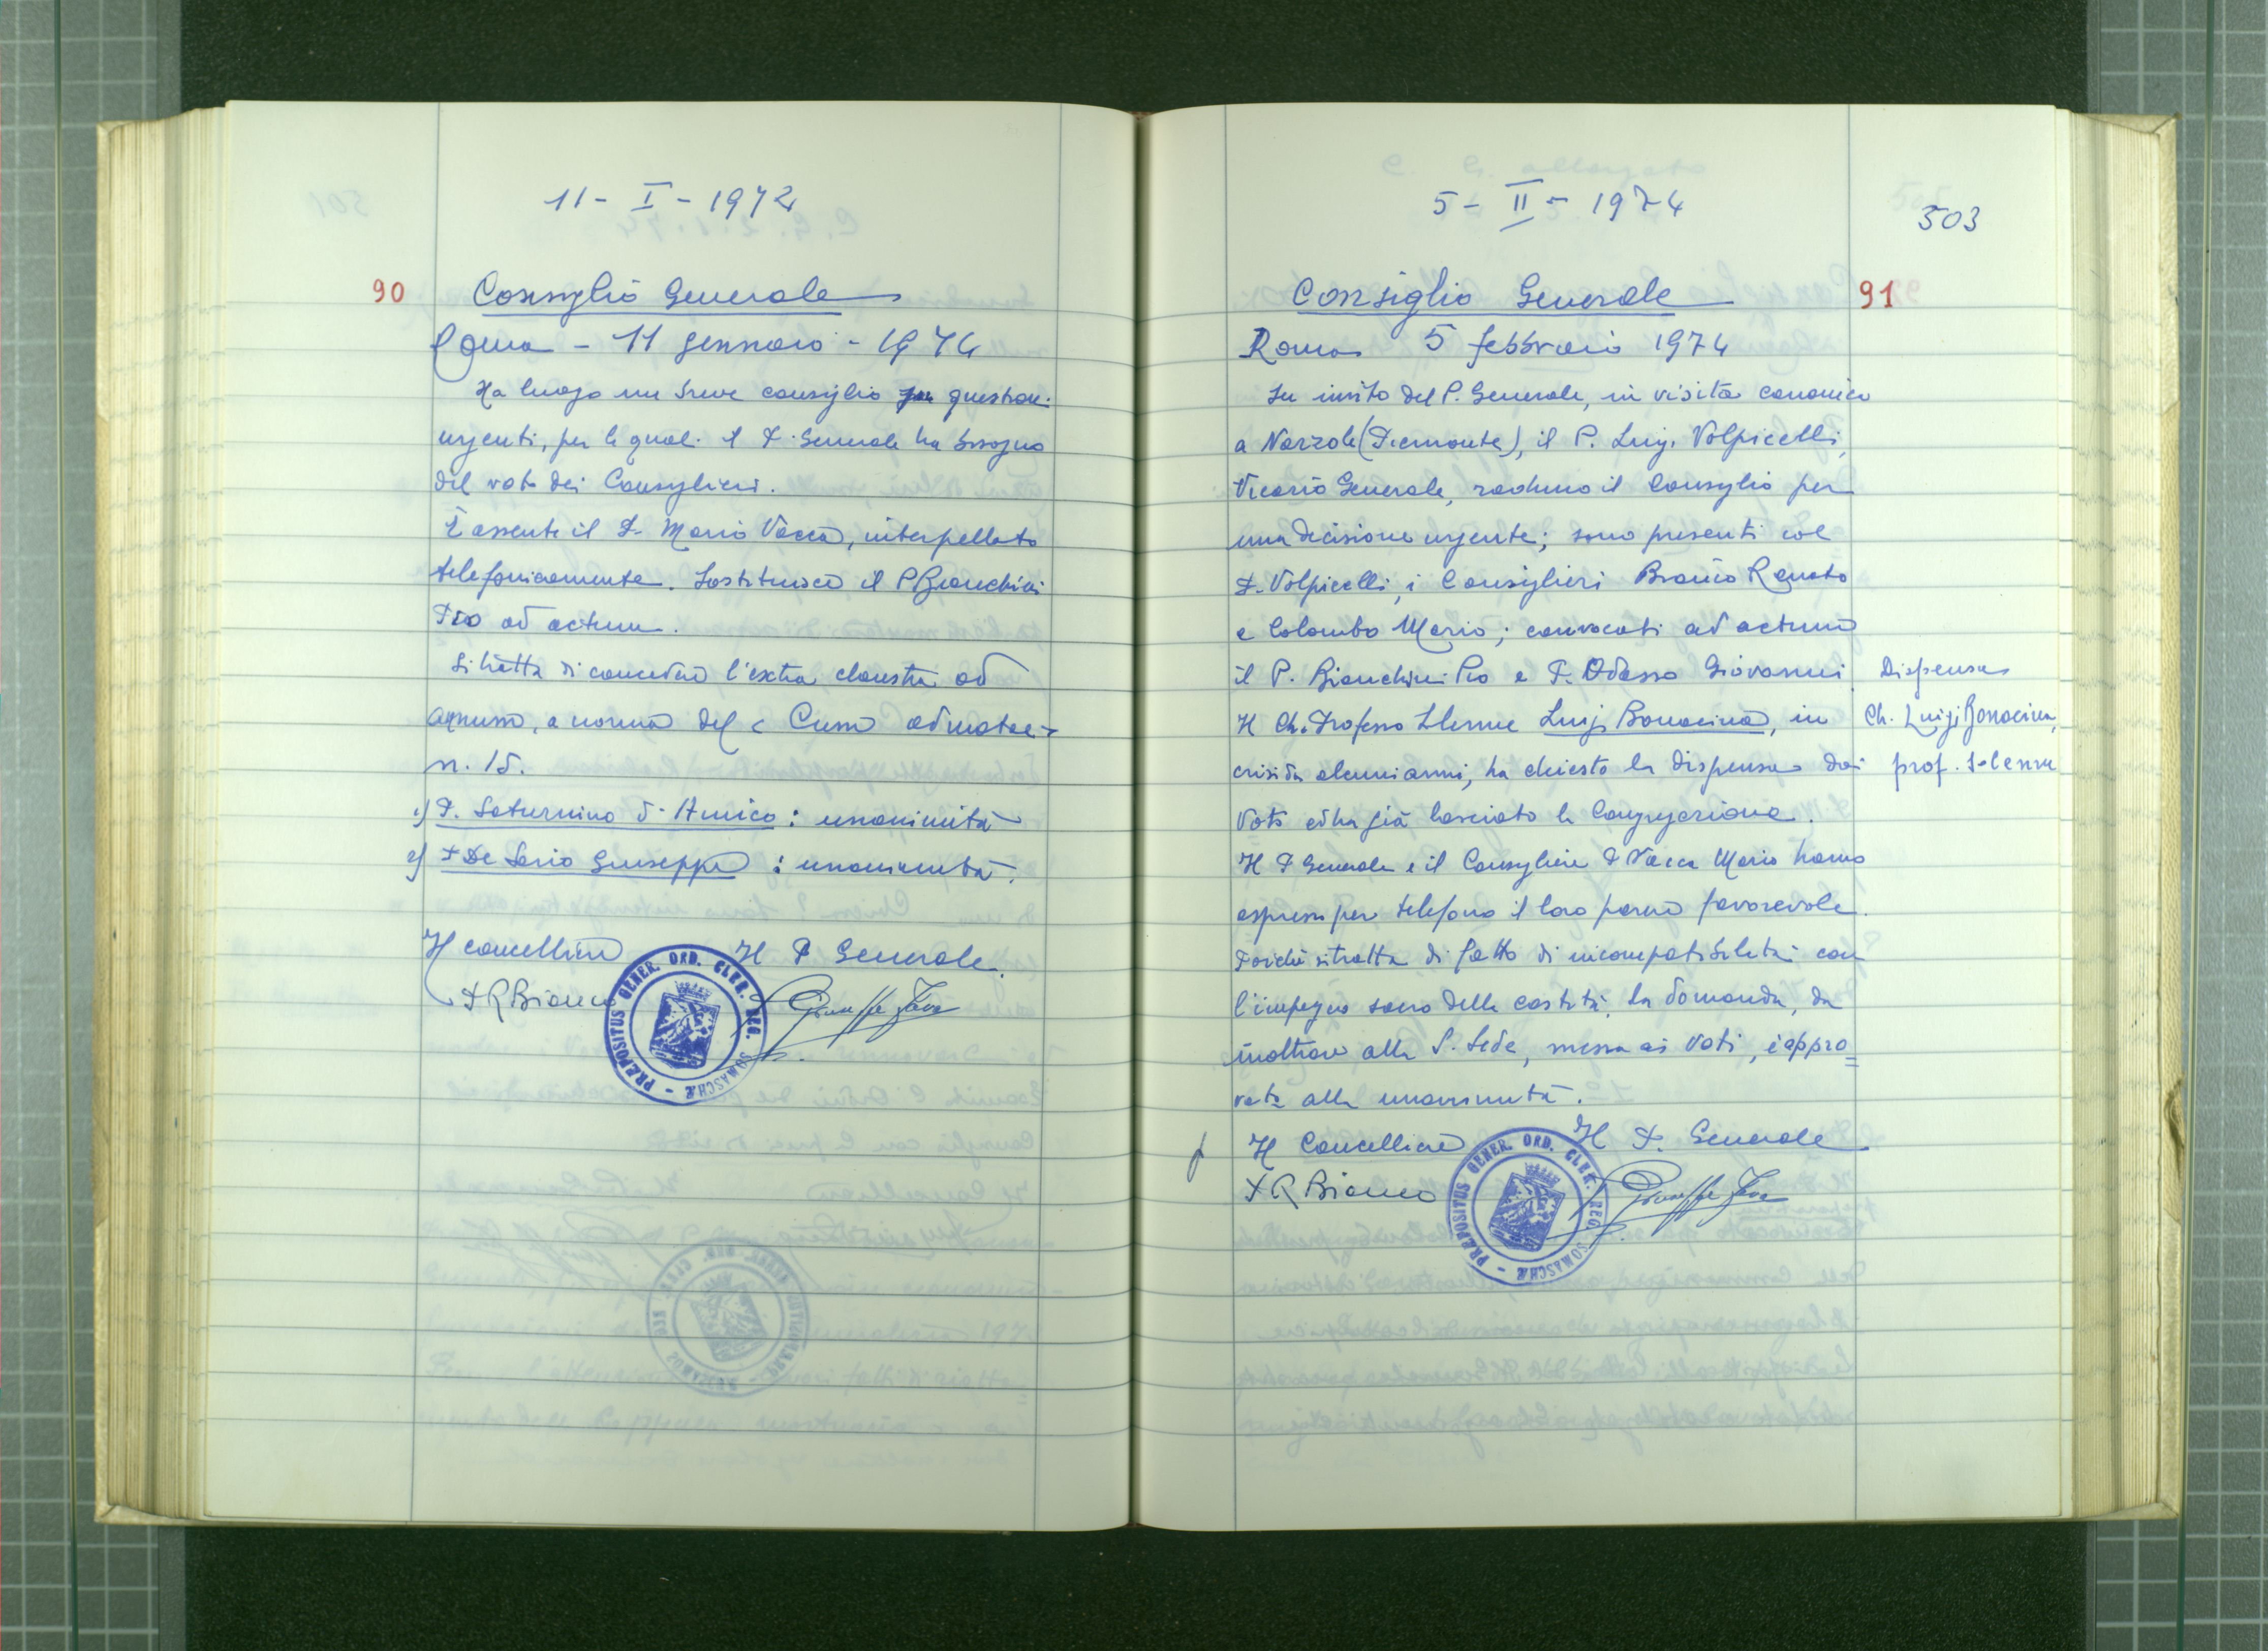 11 - I - 1972
90
Consiglio Generale
Roma - 11 gennaio - 1974
Ha luogo un breve consiglio per question.
urgenti, per le quali il P. Generale ha bisogno
del voto dei Consiglieri.
È assente il P. Mario Vacca, interpellato
telefonicamente. Sostituisce il P. Bianchini
Pio ad actum.
Si tratta di concedere l'extra claustra ad
annum, a norma del Cum admotae
n. 15.
1) P. Saturnino d'Amico : unanimità
2) P De Sario Giuseppe : unanimità.
Il cancelliere Il P Generale
P R Bianco Giuseppe Fava
PRÆPOSITUS GENER. ORD. CLER. REG. SOMASCHÆ
5 - II - 1974
503
Consiglio Generale
91
Roma 5 febbraio 1974
Su invito del P. Generale, in visita canonica
a Narzole (Piemonte), il P. Luigi Volpicelli,
Vicario Generale, raduno il Consiglio per
una decisione urgente; sono presenti col
P. Volpicelli, i Consiglieri Bianco Renato
e Colombo Mario; convocati ad actum
il P. Bianchini Pio e P. Odasso Giovanni.
Il Ch. Professo Solenne Luigi Bonacina, in
crisi da alcuni anni, ha chiesto la dispensa dai
Voti ed ha già lasciato la Congregazione.
Il P Generale e il Consigliere P Vacca Mario hanno
espresso per telefono il loro parere favorevole.
Poichè si tratta di fatto di incompatibilità con
l'impegno sacro della castità, la domanda, da
inoltrare alla S. Sede, messa ai Voti, è appro=
vata alla unanimità.
Dispensa
Ch. Luigi Bonacina,
prof. solenne
Il Cancelliere Il P. Generale
P R Bianco Giuseppe Fava
PRÆPOSITUS GENER. ORD. CLER. REG. SOMASCHÆ